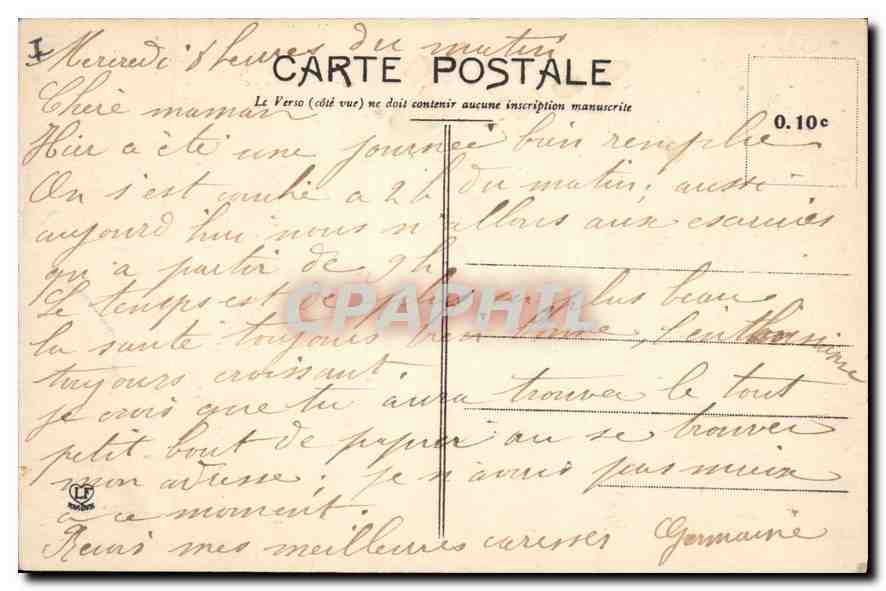 I
Mercredi 8 heures du matin
CARTE POSTALE
Le Verso (côté vue) ne doit contenir aucune inscription manuscrite
0.10c
Chère maman
Hier a été une journée bien remplie
On s'est couché a 2h du matin; aussi
aujourd'hui nous n'allons aux exercices
qu'a partir de 9h
Le temps est de plus en plus beau
la santé toujours bien bonne, l'enthousiasme
toujours croissant.
Je crois que tu aura trouver le tout
petit bout de papier ou se trouver
mon adresse; je n'avais pas mieux
a ce moment.
Recois mes meilleures caresses Germaine
LF
CPAPHIL